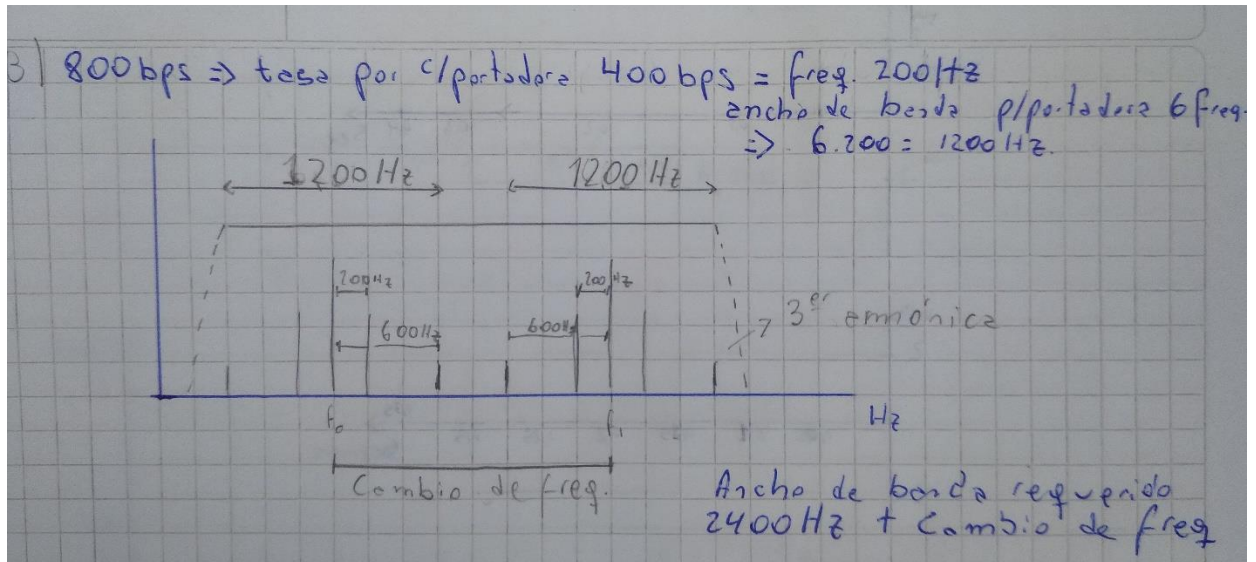 3) 800bps => tasa por c/portadora 400bps = freq. 200Hz
ancho de banda p/portadora 6 freq.
=> 6.200 = 1200Hz.
1200Hz 1200Hz
200Hz 200Hz
600Hz 600Hz 3er armónica
f0 f1 Hz
Cambio de freq.
Ancho de banda requerido
2400Hz + Cambio de freq